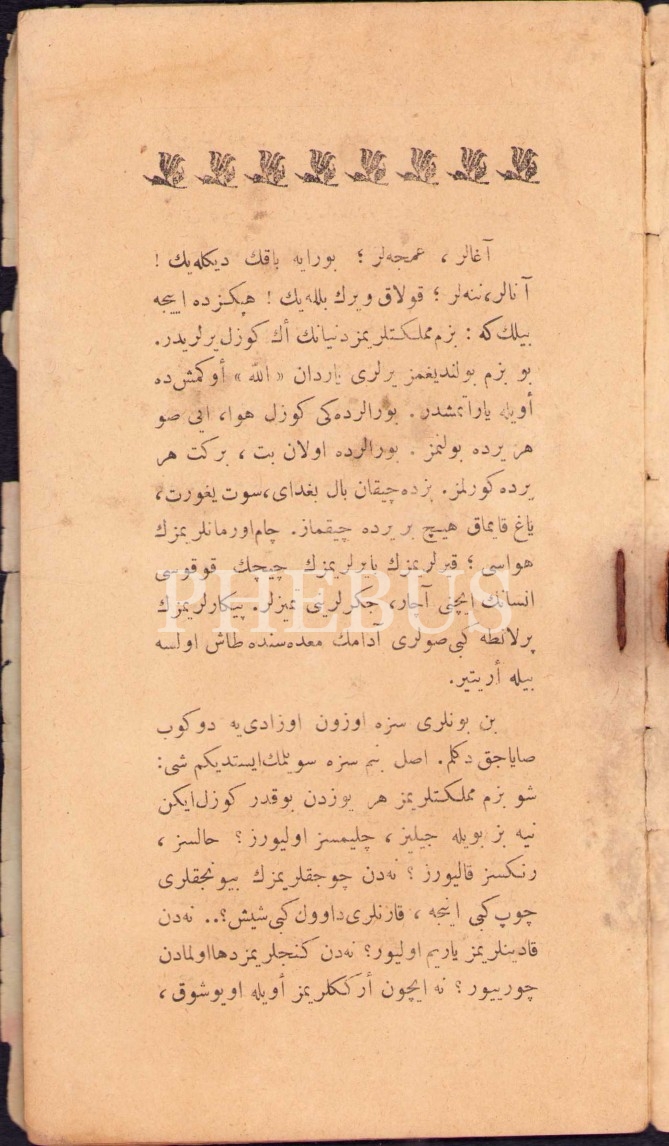 آغالر ، عمجه‌لر ؛ بورایه باقك دیكله‌یك !
آنالر، ننه‌لر ؛ قولاق ویرك بلله‌یك ! هپكزده اییجه
بیلك كه : بزم مملكتلریمز دنیانك أك كوزل یرلریدر.
بو بزم بولندیغمز یرلری یاردان « الله » أوكمش‌ده
أویله یاراتمشدر . بورالرده‌كی كوزل هوا، ایی صو
هر یرده بولنمز . بورالرده اولان بت ، بركت هر
یرده كورلمز. بزده چیقان بال بغدای، سوت یغورت،
یاغ قایماق هیچ بر یرده چیقماز. چام اورمانلریمزك
هواسی ؛ قیرلریمزك بایرلریمزك چیچك قوقوسی
انسانك ایچنی آچار، جكرلرینی تمیزلر. پیكارلریمزك
پرلانطه كبی صولری آدامك معده‌سنده طاش اولسه
بیله أریتیر.
بن بونلری سزه اوزون اوزادی‌یه دوكوب
صایاجق دكلم. اصل بنم سزه سویلمك ایستدیكم شی:
شو بزم مملكتلریمز هر یوزدن بوقدر كوزل ایكن
نیه بز بویله جیلیز ، چلیمسز اولیورز ؟ حالسز ،
رنكسز قالیورز ؟ نه‌دن چوجقلریمزك بیونجقلری
چوپ كبی اینجه ، قازنلری داوول كبی شیش ؟.. نه‌دن
قادینلریمز یاریم اولیور؟ نه‌دن كنجلریمز دها اولمادن
چورییور ؟ نه ایچون أرككلریمز أویله اویوشوق ،
PHEBUS